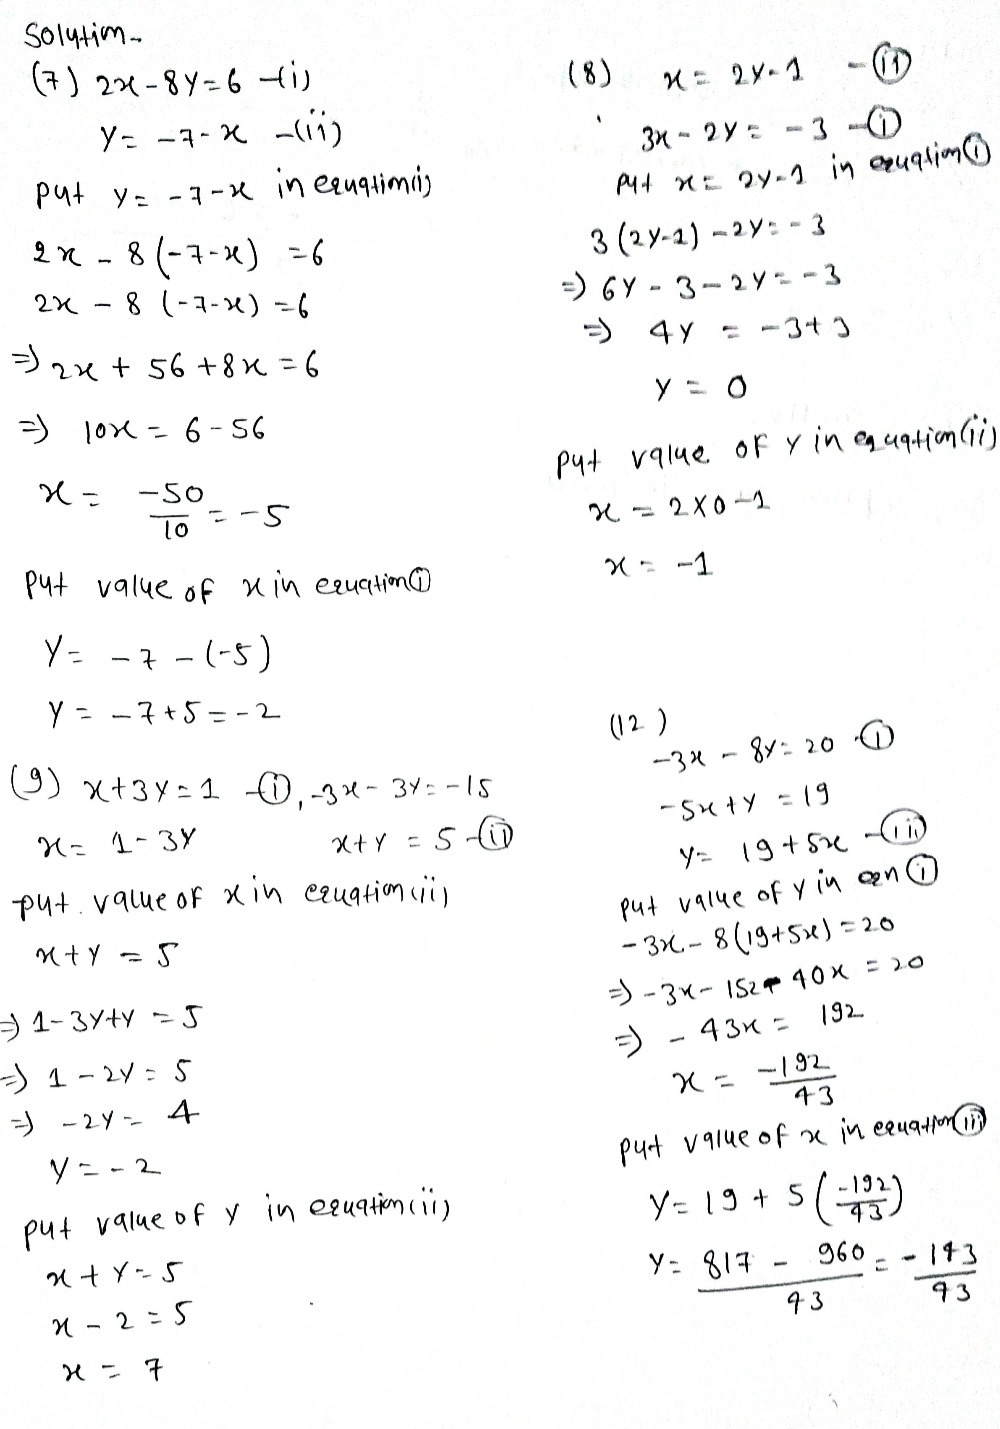 Solution-
(7) 2x-8y=6 -(i)
y= -7-x -(ii)
put y= -7-x in equation(i)
2x - 8(-7-x) =6
2x - 8 (-7-x) =6
⇒ 2x + 56 +8x =6
⇒ 10x = 6-56
x = -50/10 = -5
put value of x in equation(i)
y= -7 -(-5)
y = -7+5=-2
(9) x+3y=1 -(i), -3x- 3y=-15
x= 1-3y x+y = 5 -(ii)
put value of x in equation(ii)
x+y = 5
⇒ 1-3y+y =5
⇒ 1-2y= 5
⇒ -2y= 4
y=-2
put value of y in equation(ii)
x+y=5
x-2=5
x = 7
(8) x= 2y-1 -(ii)
3x-2y= -3 -(i)
put x= 2y-1 in equation(i)
3(2y-1) -2y= -3
⇒ 6y-3-2y=-3
⇒ 4y = -3+3
y = 0
put value of y in equation(ii)
x = 2x0-1
x = -1
(12)
-3x - 8y= 20 -(i)
-5x+y =19
y= 19+5x -(iii)
put value of y in eqn (i)
-3x-8(19+5x)=20
⇒ -3x-152-40x =20
⇒ -43x= 192
x = -192/43
put value of x in equation(iii)
y=19+5(-192/43)
y= 817 - 960/43 = -143/43